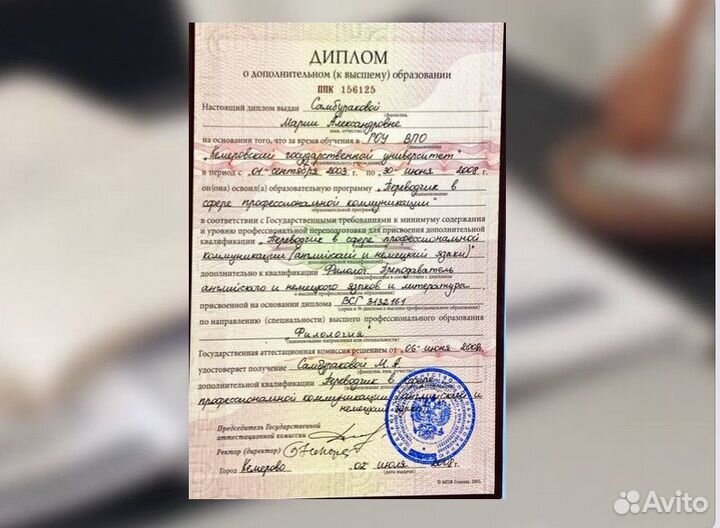 ДИПЛОМ
О ДОПОЛНИТЕЛЬНОМ (К ВЫСШЕМУ) ОБРАЗОВАНИИ
ППК 156125
Настоящий диплом выдан Самбураковой
(фамилия,
Марии Александровне
имя, отчество)
на основании того, что за время обучения в ГОУ ВПО
„Кемеровский государственный университет"
в период с „01" сентября 2003 г. по „30" июня 2008 г.
он(она) освоил(а) образовательную программу „Переводчик в
сфере профессиональной коммуникации"
в соответствии с Государственными требованиями к минимуму содержания
и уровню профессиональной переподготовки для присвоения дополнительной
квалификации „Переводчик в сфере профессиональной
коммуникации (английский и немецкий языки)"
дополнительно к квалификации Филолог. Преподаватель
английского и немецкого языков и литературы
присвоенной на основании диплома ВСГ 3132161
(серия и № диплома о высшем профессиональном образовании)
по направлению (специальности) высшего профессионального образования
„Филология"
(наименование направления или специальности)
Государственная аттестационная комиссия решением от „06" июня 2008
удостоверяет получение Самбураковой М. А.
(фамилия, имя, отчество)
дополнительной квалификации Переводчик в сфере
профессиональной коммуникации (английский и
немецкий языки)
Председатель Государственной
аттестационной комиссии
Ректор (директор)
Город Кемерово 02 июля 2008 г.
(дата выдачи)
Avito